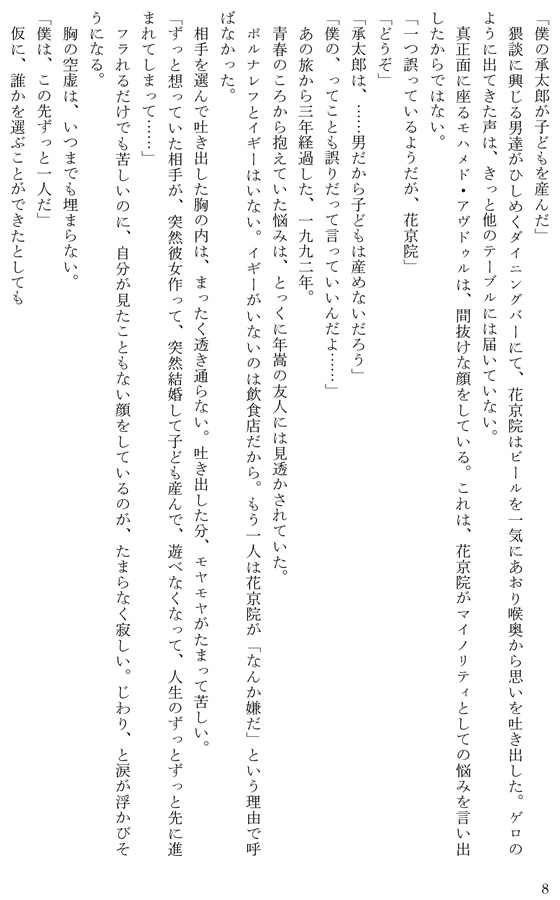 「僕の承太郎が子どもを産んだ」
　猥談に興じる男達がひしめくダイニングバーにて、花京院はビールを一気にあおり喉奥から思いを吐き出した。ゲロの
ように出てきた声は、きっと他のテーブルには届いていない。
　真正面に座るモハメド・アヴドゥルは、間抜けな顔をしている。これは、花京院がマイノリティとしての悩みを言い出
したからではない。
「一つ誤っているようだが、花京院」
「どうぞ」
「承太郎は、……男だから子どもは産めないだろう」
「僕の、ってことも誤りだって言っていいんだよ……」
　あの旅から三年経過した、一九九二年。
　青春のころから抱えていた悩みは、とっくに年嵩の友人には見透かされていた。
　ポルナレフとイギーはいない。イギーがいないのは飲食店だから。もう一人は花京院が「なんか嫌だ」という理由で呼
ばなかった。
　相手を選んで吐き出した胸の内は、まったく透き通らない。吐き出した分、モヤモヤがたまって苦しい。
「ずっと想っていた相手が、突然彼女作って、突然結婚して子ども産んで、遊べなくなって、人生のずっとずっと先に進
まれてしまって……」
　フラれるだけでも苦しいのに、自分が見たこともない顔をしているのが、たまらなく寂しい。じわり、と涙が浮かびそ
うになる。
　胸の空虚は、いつまでも埋まらない。
「僕は、この先ずっと一人だ」
　仮に、誰かを選ぶことができたとしても
8